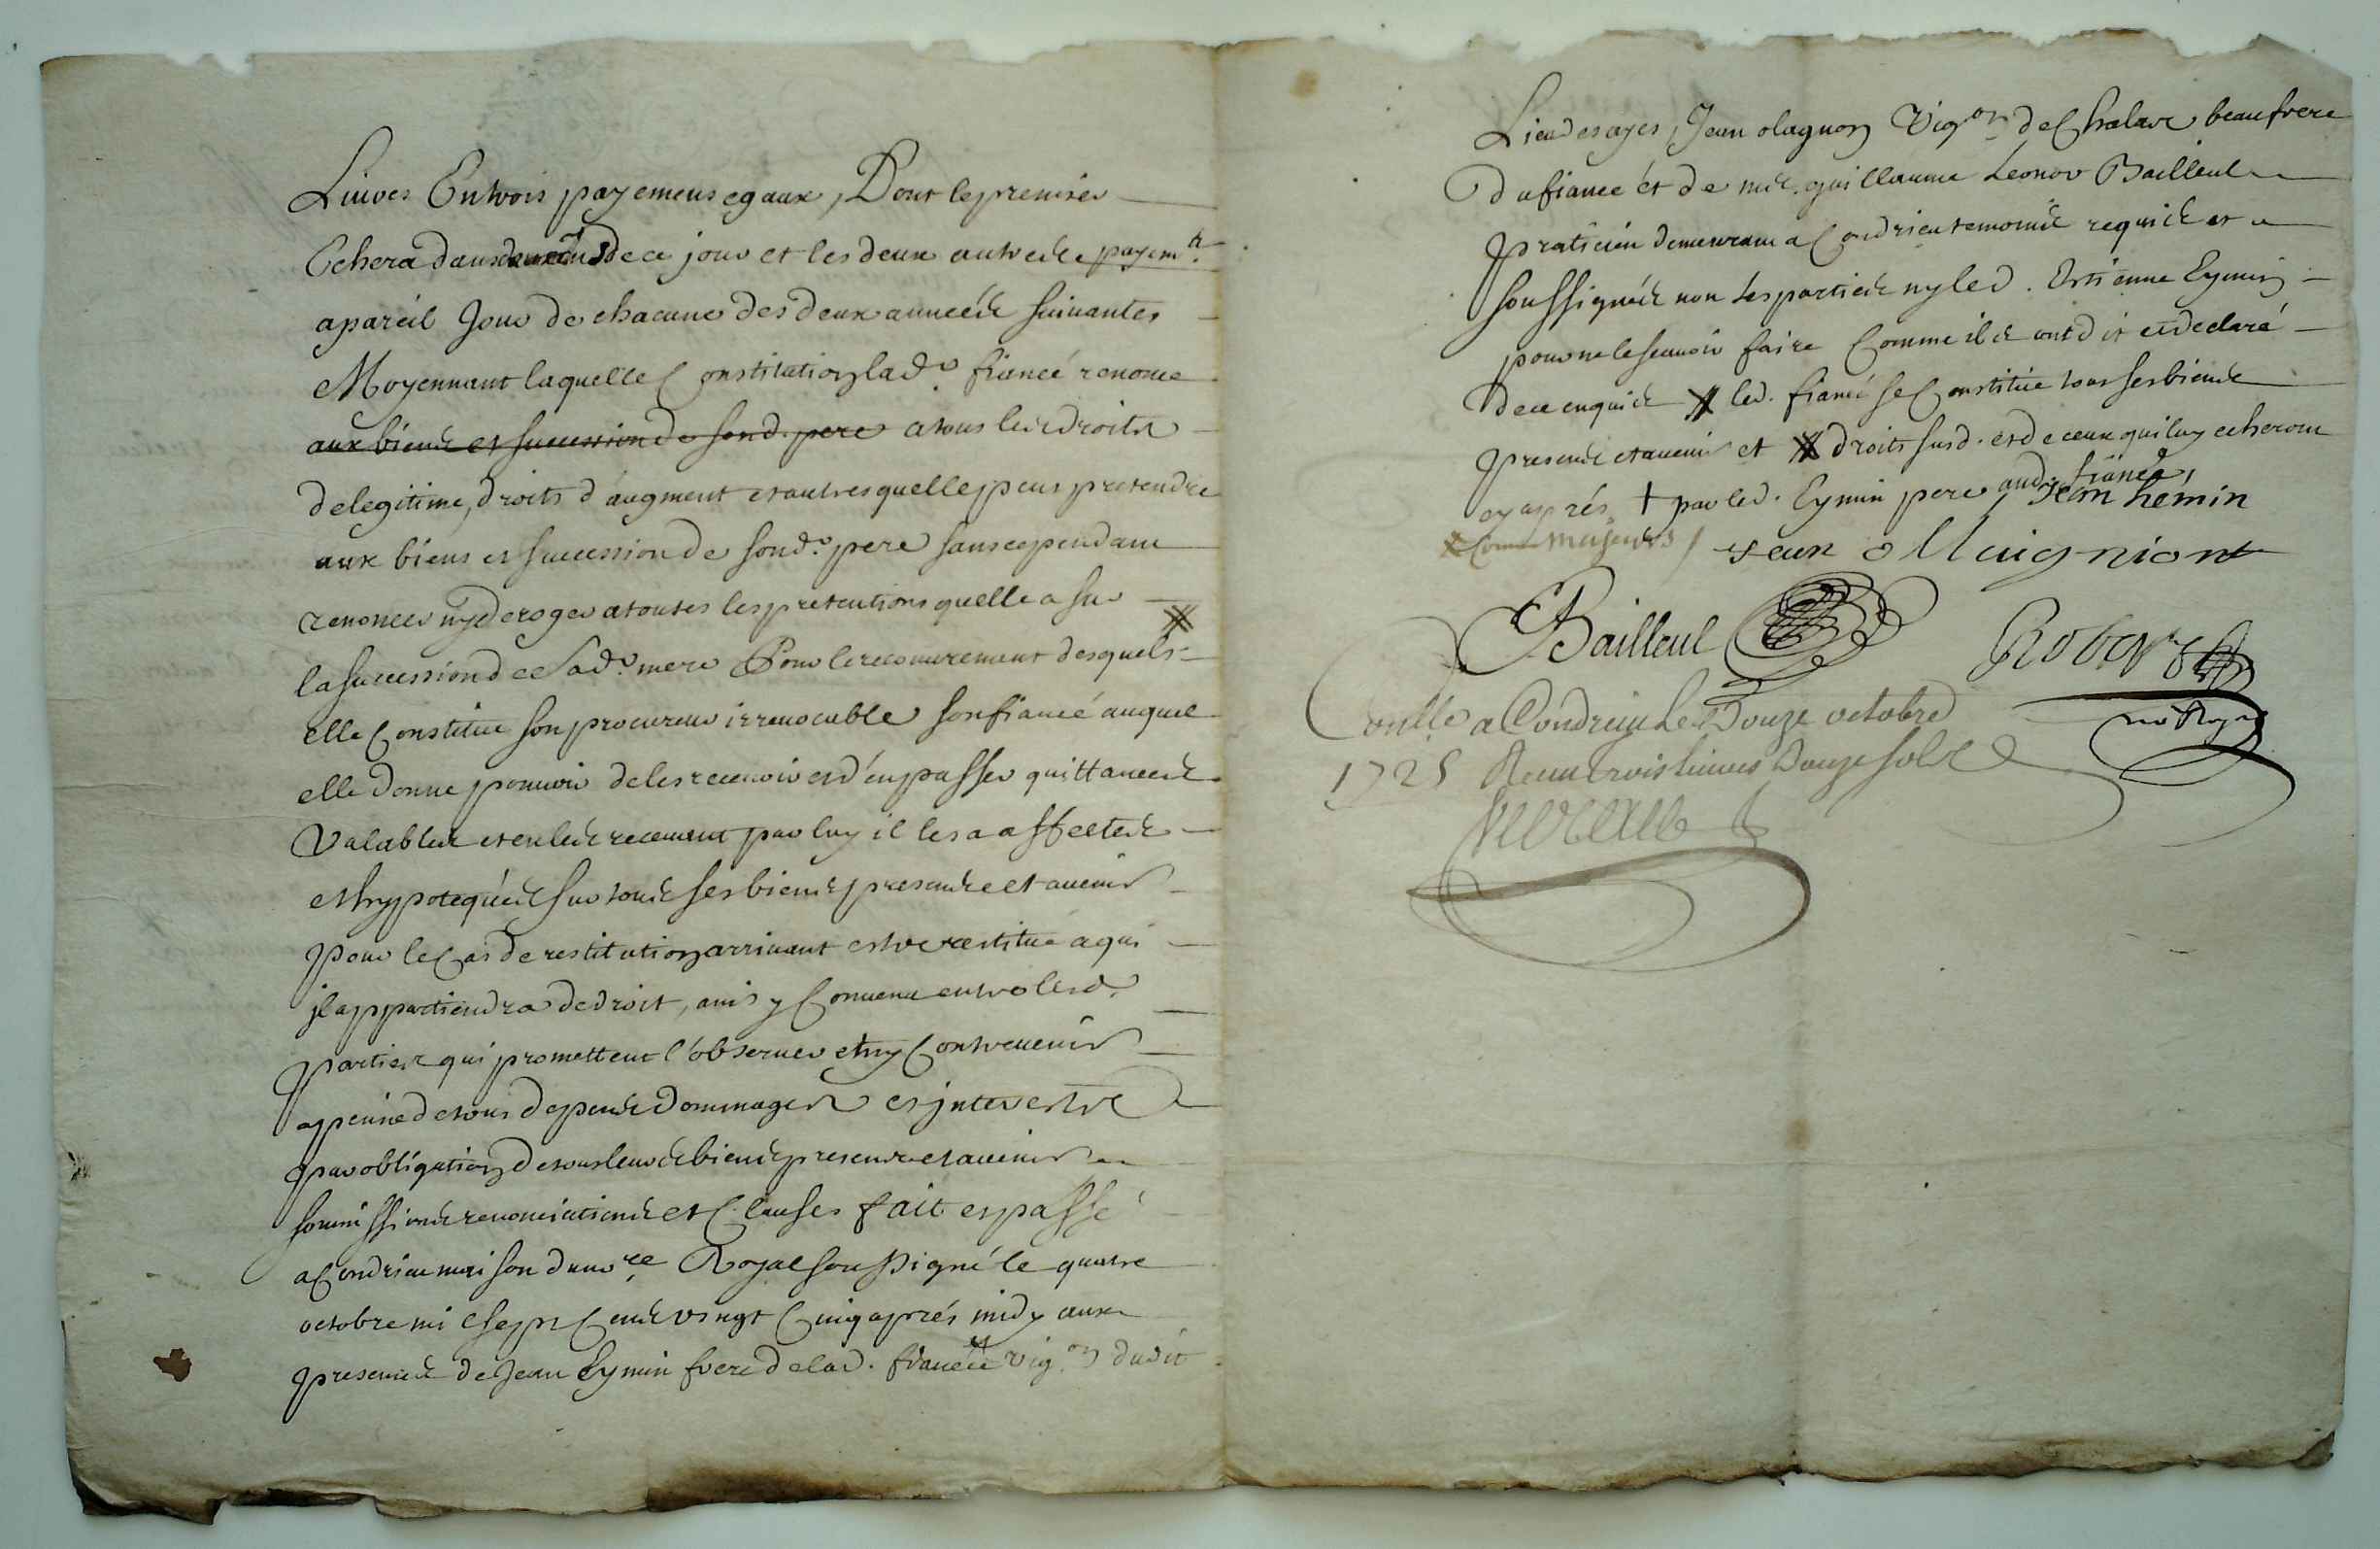 Liures En trois payemens egaux, Dont le premier
Echera dans deux ans de ce jour et les deux autres payem.ts
a pareil Jour de chacune des deux années suiuantes
Moyennant laquelle Constitution lad.e fiancé renonce
aux biens et succession de sond. pere a tous les droits
de legitime, droits d'augment et autres quelle peus pretendre
aux biens et succession de sond.e pere sans cependant
renoncer ny deroger a toutes les pretentions quelle a sur
la succession de sad.e mere Pour le recouurement desquels
elle Constitue son procureur irreuocable son fiancé auquel
elle donne pouuoir de les receuoir et d'en passer quittances
Valables et en les receuant par luy il les a affectés
et hypotequés sur tous ses biens presens et auenir
pour le Cas de restitution arriuant estre restitué a qui
jl appartiendra de droit, ainsy Conuenu entre lesd.
parties qui promettent l'obseruer et ny Contreuenir
a peine de tous depens Dommages et jnterestz
par obligation de tous leurs biens presens et auenir
soumissions renonciations et Clauses fait et passé
a Condrieu maison du no.re Royal soussigné le quatre
octobre mil sept Cens vingt Cinq aprés midy aux
presences de Jean Eymin frere de lad. fiancée vig.on dudit
Lieu des ayes, Jean olagnon Vig.on de Chalan beaufrere
du fiancé et de me. guillaume Leonor Bailleul
praticien demeurant a Condrieu temoins requis et
soussignés non les parties ny led. Estienne Eymin
pour ne le scauoir faire Comme ils ont dit et declaré
de ce enquis # led. fiancé se Constitue tous ses biens
presens et auenir et # droits susd. et de ceux qui luy echeront
cy aprés + par led. Eymin pere aud. fiancé,
Jean hémin
Comme majeurs
Bailleul
Robert
no Royal
Conlle a Condrieu Le Douze octobre
1725 Receu trois liures Douze sols